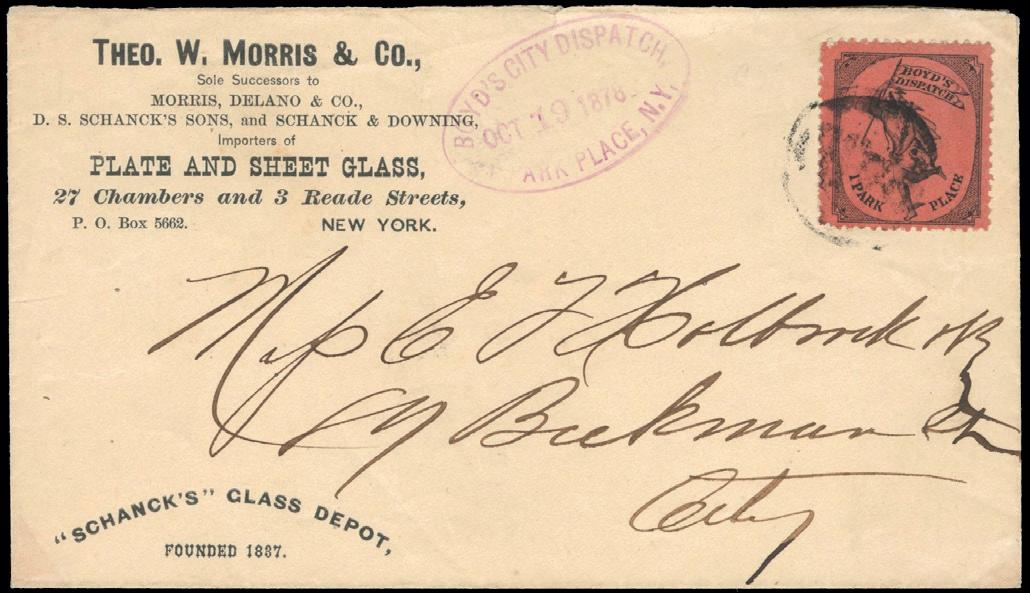 THEO. W. MORRIS & CO.,
Sole Successors to
MORRIS, DELANO & CO.,
D. S. SCHANCK'S SONS, and SCHANCK & DOWNING,
Importers of
PLATE AND SHEET GLASS,
27 Chambers and 3 Reade Streets,
P. O. Box 5662. NEW YORK.
BOYD'S CITY DISPATCH,
OCT 19 1878
ARK PLACE, N.Y.
BOYD'S
DISPATCH
1 PARK PLACE
E F Holbrook
Beekman St
City
"SCHANCK'S" GLASS DEPOT,
FOUNDED 1837.